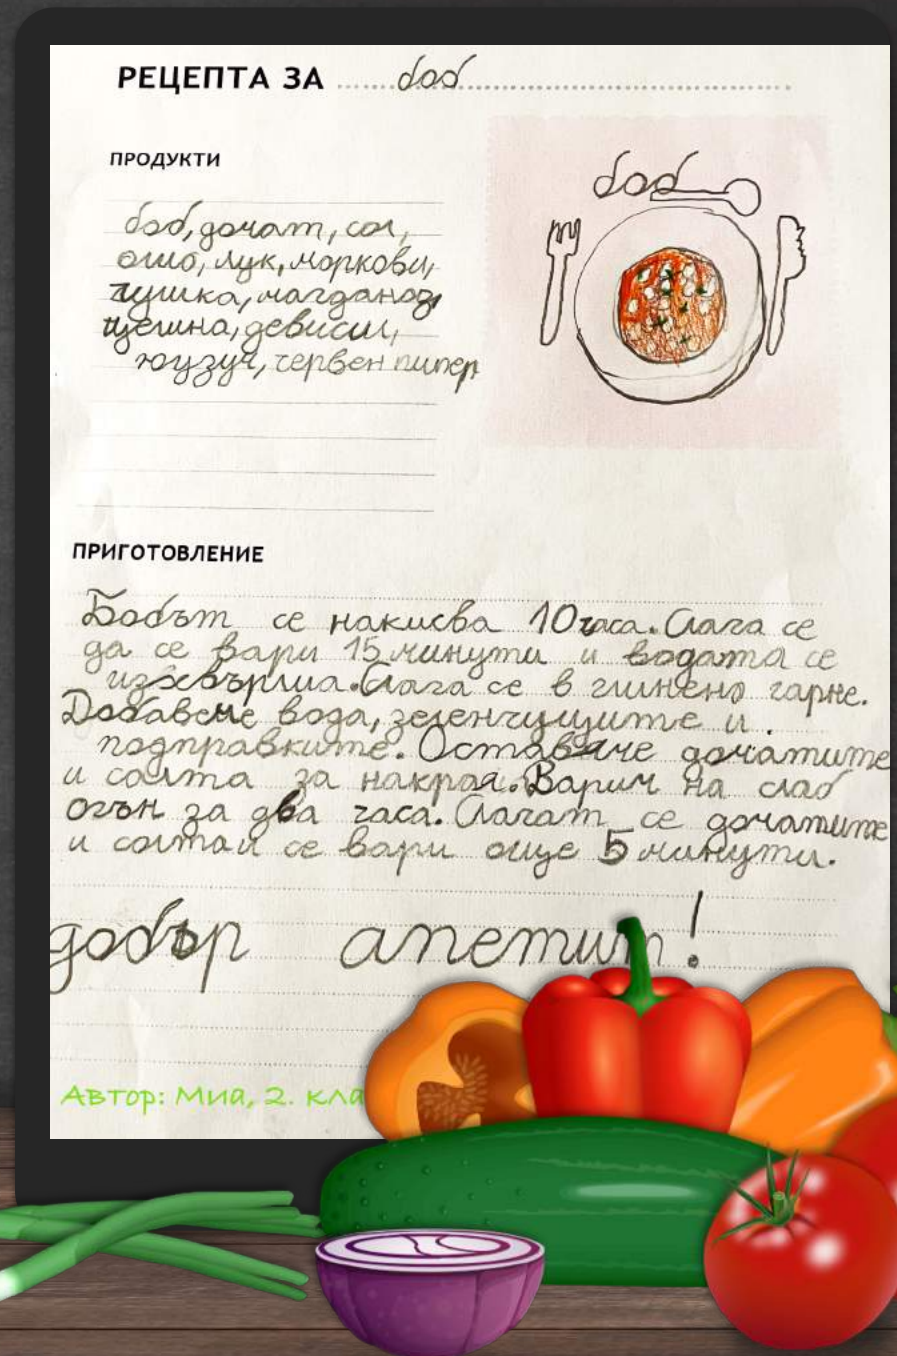 РЕЦЕПТА ЗА боб
ПРОДУКТИ
боб
боб, домат, сол,
олио, лук, моркови,
чушка, магданоз,
целина, девисил,
юзум, червен пипер
ПРИГОТОВЛЕНИЕ
Бобът се накисва 10 часа. Слага се
да се вари 15 минути и водата се
изхвърлиа. Слага се в глинено гарне.
Добавеме вода, зеленчуците и
подправките. Оставаме доматите
и солта за накрая. Варим на слаб
огън за два часа. Слагат се доматите
и солта и се вари още 5 минути.
добър апетит!
Автор: Миа, 2. кла